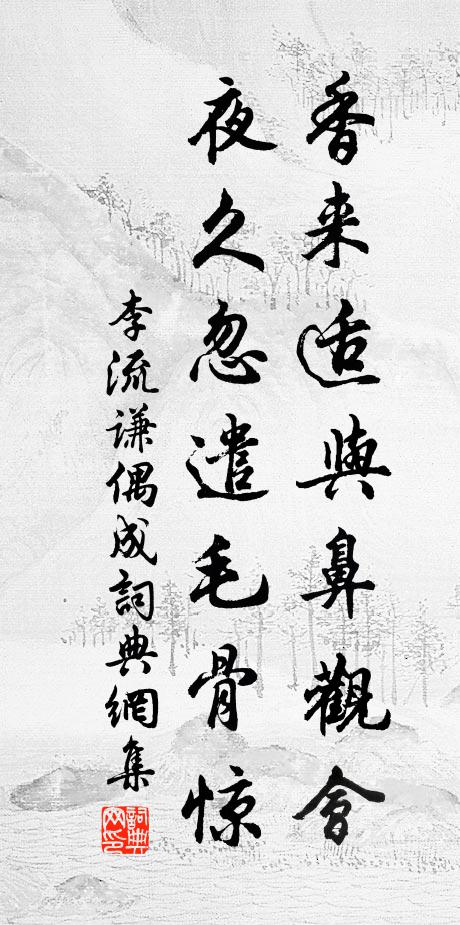 香来适與鼻觀會
夜久忽遣毛骨惊
李流谦偶成詞典網集
詞典網印